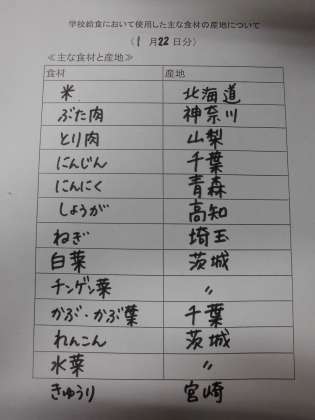 学校給食において使用した主な食材の産地について
(1月22日分)
≪主な食材と産地≫
食材 産地
米 北海道
ぶた肉 神奈川
とり肉 山梨
にんじん 千葉
にんにく 青森
しょうが 高知
ねぎ 埼玉
白菜 茨城
チンゲン菜 〃
かぶ・かぶ葉 千葉
れんこん 茨城
水菜 〃
きゅうり 宮崎